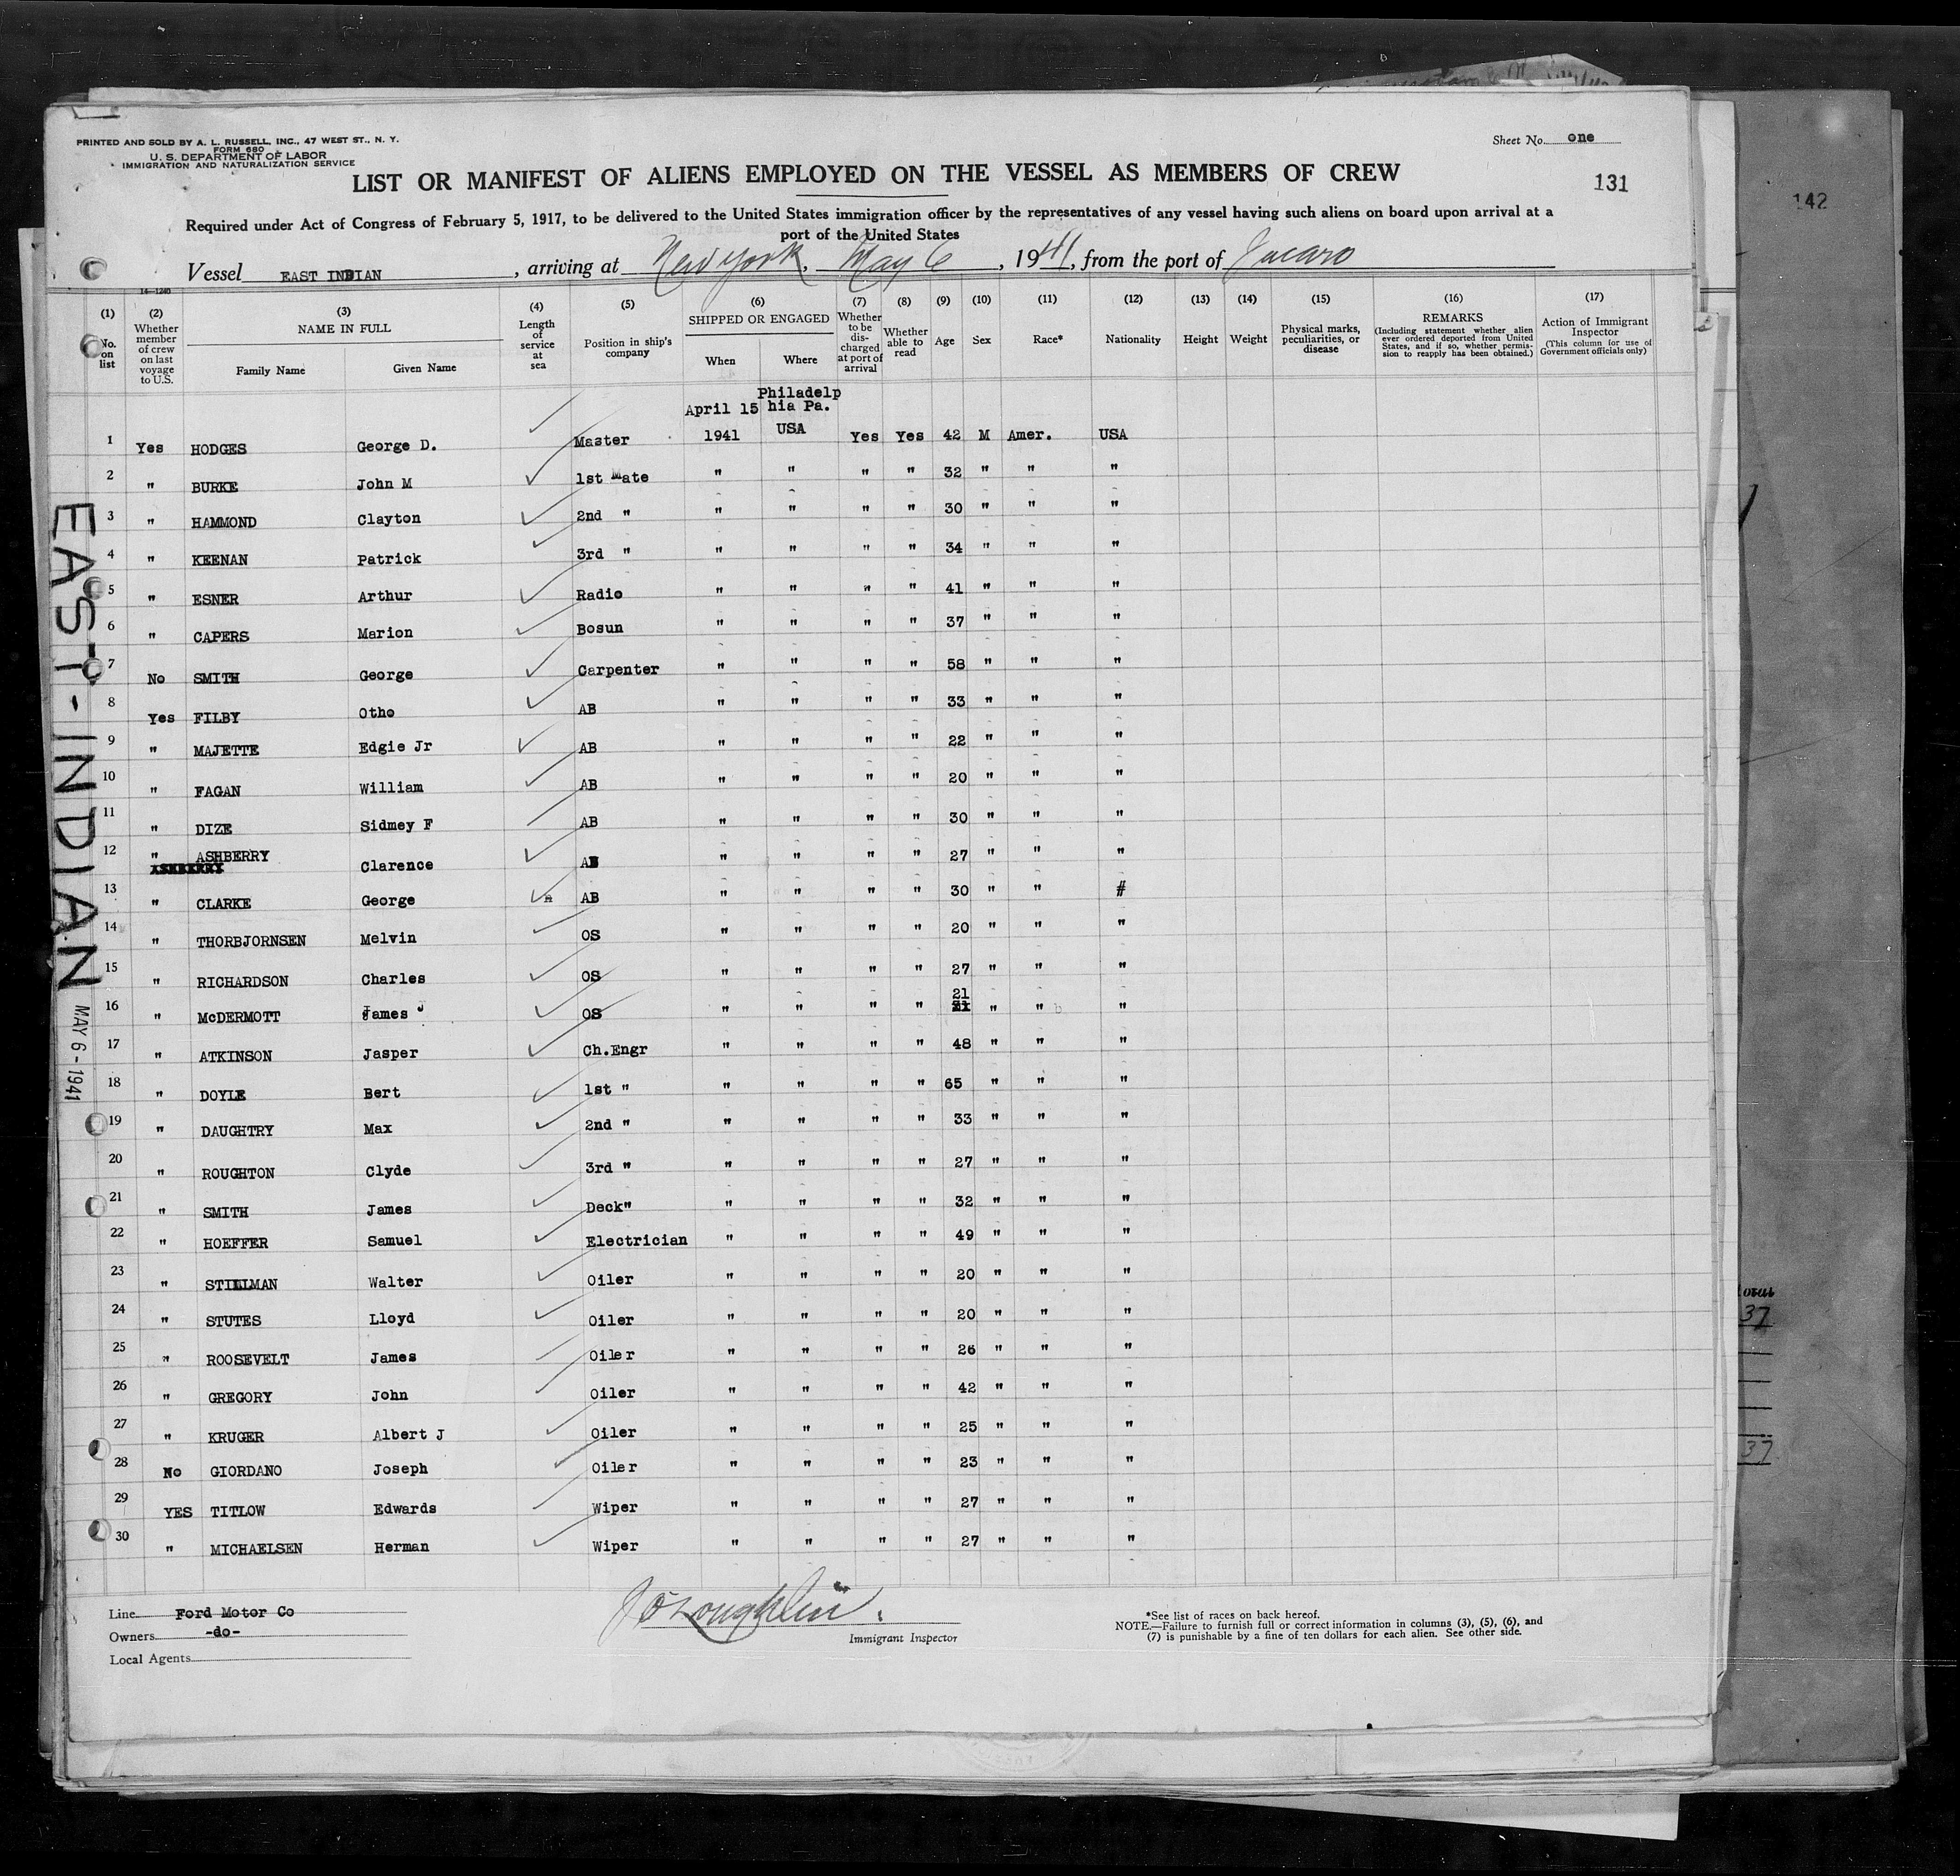 PRINTED AND SOLD BY A. L. RUSSELL, INC., 47 WEST ST., N. Y.
FORM 680
U. S. DEPARTMENT OF LABOR
IMMIGRATION AND NATURALIZATION SERVICE
Sheet No. one
LIST OR MANIFEST OF ALIENS EMPLOYED ON THE VESSEL AS MEMBERS OF CREW
131
142
Required under Act of Congress of February 5, 1917, to be delivered to the United States immigration officer by the representatives of any vessel having such aliens on board upon arrival at a
port of the United States
Vessel EAST INDIAN, arriving at New York, May 6, 1941, from the port of
14-1240
(1) No. on list
(2) Whether member of crew on last voyage to U.S.
(3) NAME IN FULL Family Name Given Name
(4) Length of service at sea
(5) Position in ship's company
(6) SHIPPED OR ENGAGED When Where
(7) Whether to be discharged at port of arrival
(8) Whether able to read
(9) Age
(10) Sex
(11) Race*
(12) Nationality
(13) Height
(14) Weight
(15) Physical marks, peculiarities, or disease
(16) REMARKS (Including statement whether alien ever ordered deported from United States, and if so, whether permission to reapply has been obtained.)
(17) Action of Immigrant Inspector (This column for use of Government officials only)
Philadelp
April 15 hia Pa.
1 Yes HODGES George D. Master 1941 USA Yes Yes 42 M Amer. USA
2 " BURKE John M 1st Mate " " " " 32 " " "
3 " HAMMOND Clayton 2nd " " " " " 30 " " "
4 " KEENAN Patrick 3rd " " " " " 34 " " "
5 " ESNER Arthur Radio " " " " 41 " " "
6 " CAPERS Marion Bosun " " " " 37 " " "
7 No SMITH George Carpenter " " " " 58 " " "
8 Yes FILBY Otho AB " " " " 33 " " "
9 " MAJETTE Edgie Jr AB " " " " 22 " " "
10 " FAGAN William AB " " " " 20 " " "
11 " DIZE Sidmey F AB " " " " 30 " " "
12 " ASHBERRY Clarence AB " " " " 27 " " "
13 " CLARKE George AB " " " " 30 " " #
14 " THORBJORNSEN Melvin OS " " " " 20 " " "
15 " RICHARDSON Charles OS " " " " 27 " " "
16 " McDERMOTT James J OS " " " " 21 " " "
17 " ATKINSON Jasper Ch.Engr " " " " 48 " " "
18 " DOYLE Bert 1st " " " " " 65 " " "
19 " DAUGHTRY Max 2nd " " " " " 33 " " "
20 " ROUGHTON Clyde 3rd " " " " " 27 " " "
21 " SMITH James Deck" " " " " 32 " " "
22 " HOEFFER Samuel Electrician " " " " 49 " " "
23 " STILLMAN Walter Oiler " " " " 20 " " "
24 " STUTES Lloyd Oiler " " " " 20 " " "
25 " ROOSEVELT James Oiler " " " " 26 " " "
26 " GREGORY John Oiler " " " " 42 " " "
27 " KRUGER Albert J Oiler " " " " 25 " " "
28 No GIORDANO Joseph Oiler " " " " 23 " " "
29 YES TITLOW Edwards Wiper " " " " 27 " " "
30 " MICHAELSEN Herman Wiper " " " " 27 " " "
EAST-INDIAN
MAY 6-1941
37
37
Line Ford Motor Co
Owners -do-
Local Agents
Immigrant Inspector
*See list of races on back hereof.
NOTE.—Failure to furnish full or correct information in columns (3), (5), (6), and
(7) is punishable by a fine of ten dollars for each alien. See other side.